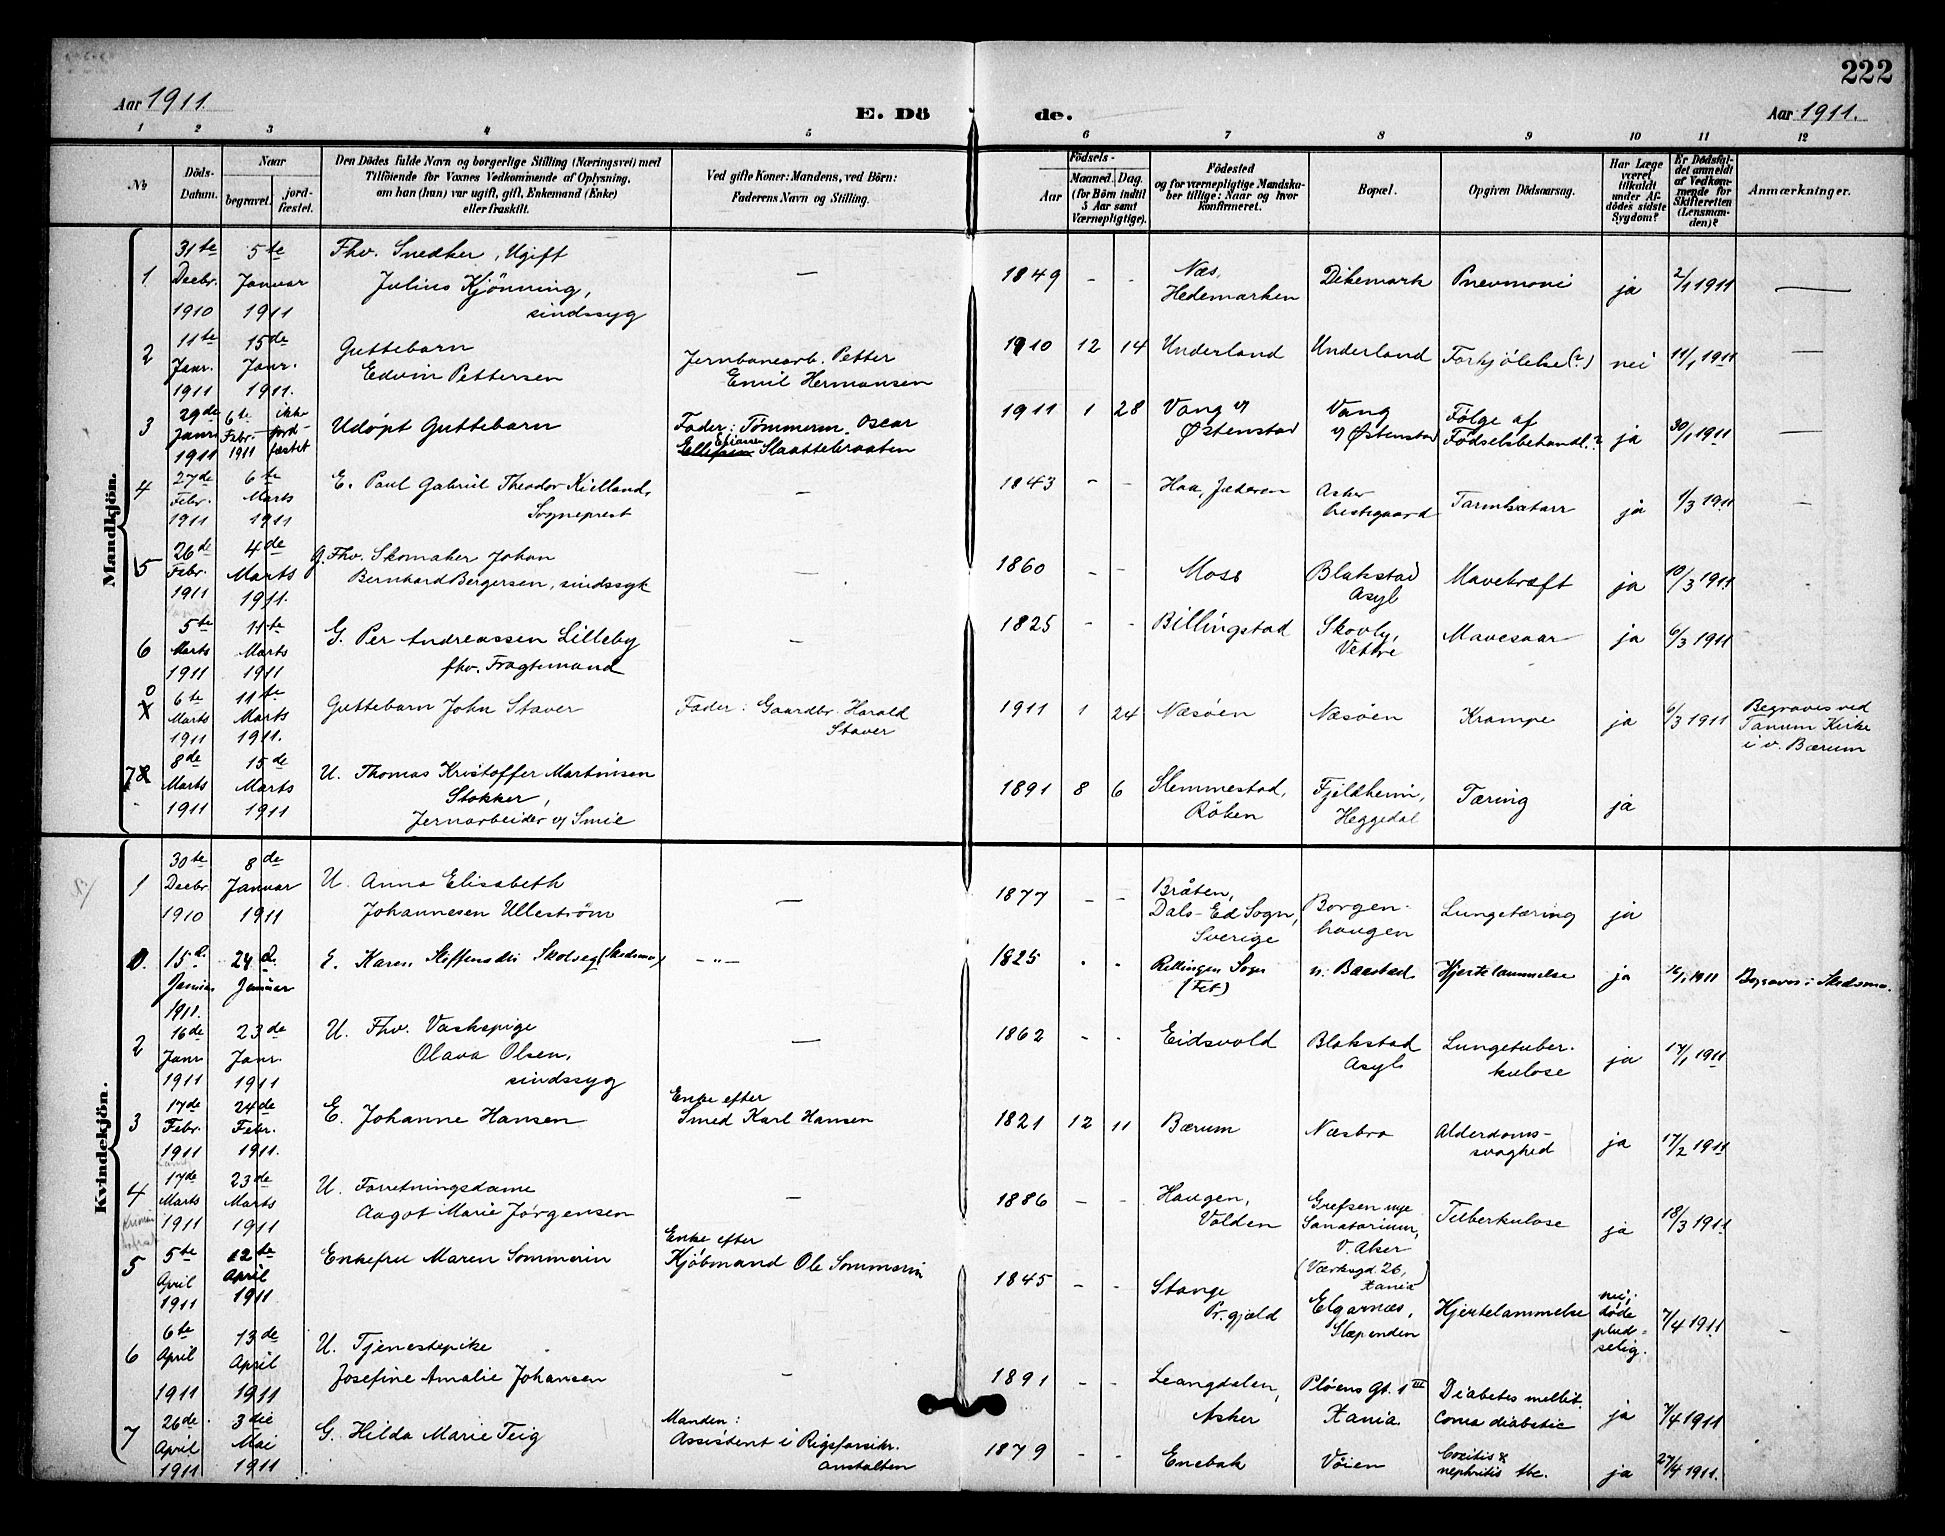 222
Aar 1911.
E. Dö
de.
Aar 1911.
1 2 3 4 5 6 7 8 9 10 11 12
No
Döds-Datum.
Naar
begravet.
jord-fæstet.
Den Dödes fulde Navn og borgerlige Stilling (Næringsvei) med
Tilföiende for Voxnes Vedkommende af Oplysning,
om han (hun) var ugift, gift, Enkemand (Enke)
eller fraskilt.
Ved gifte Koner: Mandens, ved Börn:
Faderens Navn og Stilling.
Födsels-
Aar
Maaned. Dag.
(for Börn indtil
5 Aar samt
Værnepligtige).
Födested
og for værnepligtige Mandska-
ber tillige: Naar og hvor
konfirmeret.
Bopæl.
Opgiven Dödsaarsag.
Har Læge
været
tilkaldt
under Af-
dödes sidste
Sygdom?
Er Dödsfal-
det anmeldt
af Vedkom-
mende for
Skifteretten
(Lensman-
den)?
Anmærkninger.
Mandkjön.
1 31te Decbr. 1910 5te Januar 1911 Fhv. Snedker, Ugift
Julius Kjönning,
sindssyg — 1849 - - Næs,
Hedemarken Dikemark Pnevmoni ja 2/1 1911 —
2 11te Janr. 1911 15de Janr. 1911. Guttebarn
Edvin Pettersen Jernbanearb. Petter
Emil Hermansen 1910 12 14 Underland Underland Forkjølelse (?) nei 11/1 1911 —
3 29de Janr. 1911 6te Febr. 1911 ikke jord-fæstet Udøpt Guttebarn Fader: Tömmerm. Oscar
Ellefsen Slaattebraaten 1911 1 28 Vang v/
Østenstad Vang
v/ Østenstad Følge af
Fødselsbehandl.? ja 30/1 1911 —
4 27de Febr. 1911 6te Marts 1911 E. Paul Gabriel Theodor Kielland,
Sogneprest — 1843 - - Haa, Jæderen Asker
Prestegaard Tarmkatarr ja 1/3 1911 —
5 26de Febr. 1911 4de Marts 1911. G. Fhv. Skomaker Johan
Bernhard Bergersen, sindssyk — 1860 - - Moss Blakstad
Asyl Mavekræft ja 10/3 1911 -
6 5te Marts 1911 11te Marts 1911 G. Per Andreassen Lilleby
fhv. Fragtemand — 1825 - - Billingstad Skovly,
Vettre Mavesaar ja 6/3 1911 -
0 6te Marts 1911 11te Marts 1911. Guttebarn John Staver Fader: Gaardbr. Harald
Staver 1911 1 24 Næsöen Næsöen Krampe ja 6/3 1911 Begraves ved
Tanum Kirke
i v. Bærum
7 8 8de Marts 1911 15de Marts 1911 U. Thomas Kristoffer Martinsen
Stokker,
Jernarbeider v/ Smie 1891 8 6 Slemmestad,
Röken Fjeldheim,
Heggedal Tæring ja
Kvindekjön.
1 30te Decbr. 1910 8de Januar 1911 U. Anna Elisabeth
Johannesen Ulleström — 1877 - - Bråten,
Dals-Ed Sogn,
Sverige Borgen-
haugen Lungetæring ja
0. 15d. Januar 1911. 24d. Januar E. Karen Steffensdtr Skolseg (Skedsmo) — " — 1825 - - Rellingen Sogn
(Fet) n. Baastad Hjertelammelse ja 16/1 1911 Begraves i Skedsmo.
2 16de Janr. 1911 23de Janr. 1911 U. Fhv. Vaskepige
Olava Olsen,
sindssyg — 1862 - - Eidsvold Blakstad
Asyl Lungetuber-
kulose ja 17/1 1911
3 17de Febr. 1911 24de Febr. 1911. E. Johanne Hansen Enke efter
Smed Karl Hansen 1821 12 11 Bærum Næsbro Alderdoms-
svaghed ja 17/2 1911
4 17de Marts 1911 23de Marts 1911 U. Forretningsdame
Aagot Marie Jörgensen — 1886 - - Haugen,
Volden Grefsen nye
Sanatorium,
V. Aker Tuberkulose ja 18/3 1911
5 5te April 1911 12te April 1911 Enkefru Maren Sommerin Enke efter
Kjöbmand Ole Sommerin 1845 - - Stange
Pr.gjæld (Værksgd. 26,
Xania)
Elgarnæs,
Slæpenden Hjertelammelse nei;
döde
plud-
selig. 7/4 1911 -
6 6te April 1911 13de April 1911 U. Tjenestepike
Josefine Amalie Johansen - 1891 - - Leangdalen,
Asker Pløens Gt. 1 III
Xania. Diabetes mellit.
Coma diabetic ja 7/4 1911
7 26de April 1911 3die Mai 1911 G. Hilda Marie Teig Manden:
Assistent i Rigsforsikr.
anstalten 1879 - - Enebak Vöien Coxitis &
nephritis tbc. ja 27/4 1911.